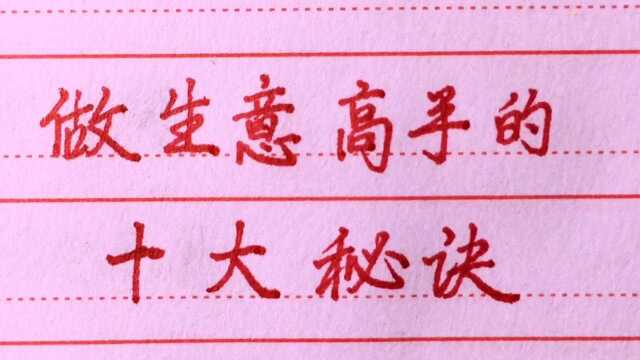 做生意高手的
十大秘诀